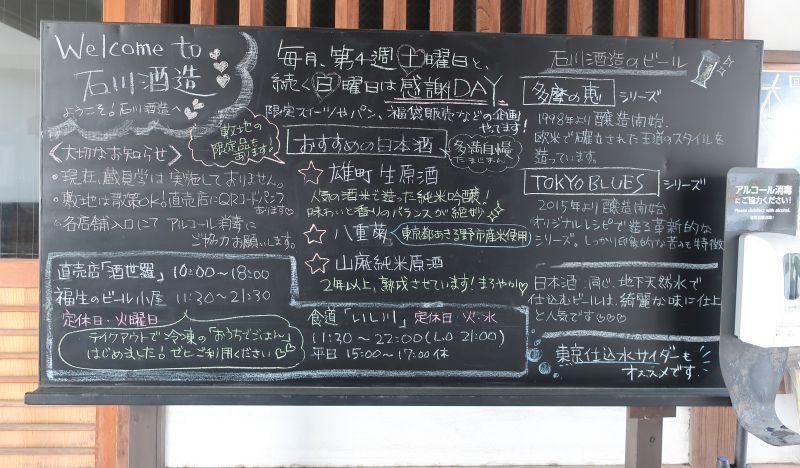 Welcome to
石川酒造
ようこそ！石川酒造へ
〈大切なお知らせ〉
・現在、蔵見学は実施しておりません。
・敷地は散策OK！直売店にQRコードパンフ
あります♡
・各店舗入口にてアルコール消毒に
ご協力お願いします。
敷地の
限定品も
あります！
毎月、第4週土曜日と、
続く日曜日は感謝DAY
限定スイーツやパン、福袋販売などの企画
やってます！
おすすめの日本酒
多満自慢
たまじまん
☆雄町 生原酒
人気の酒米で造った純米吟醸！
味わいと香りのバランスが絶妙
☆八重菊
東京都あきる野市産米使用
☆山廃純米原酒
2年以上、熟成させています！まろやか♡
石川酒造のビール
多摩の恵 シリーズ
1998年より醸造開始。
欧米で確立された王道のスタイルを
造っています。
TOKYO BLUES シリーズ
2015年より醸造開始
オリジナルレシピで造る革新的な
シリーズ。しっかり印象的な苦みも特徴
日本酒と同じ、地下天然水で
仕込むビールは、綺麗な味に仕上
と人気です♡♡♡
東京仕込水サイダーも
オススメです
直売店「酒世羅」 10:00〜18:00
福生のビール小屋 11:30〜21:30
定休日・火曜日
テイクアウトで冷凍の「おうちでごはん」
はじめました！ぜひご利用ください
食道「いし川」 定休日・火・水
11:30〜22:00 (L.O 21:00)
平日 15:00〜17:00 休
アルコール消毒
にご協力ください！
Please disinfect with alcohol.